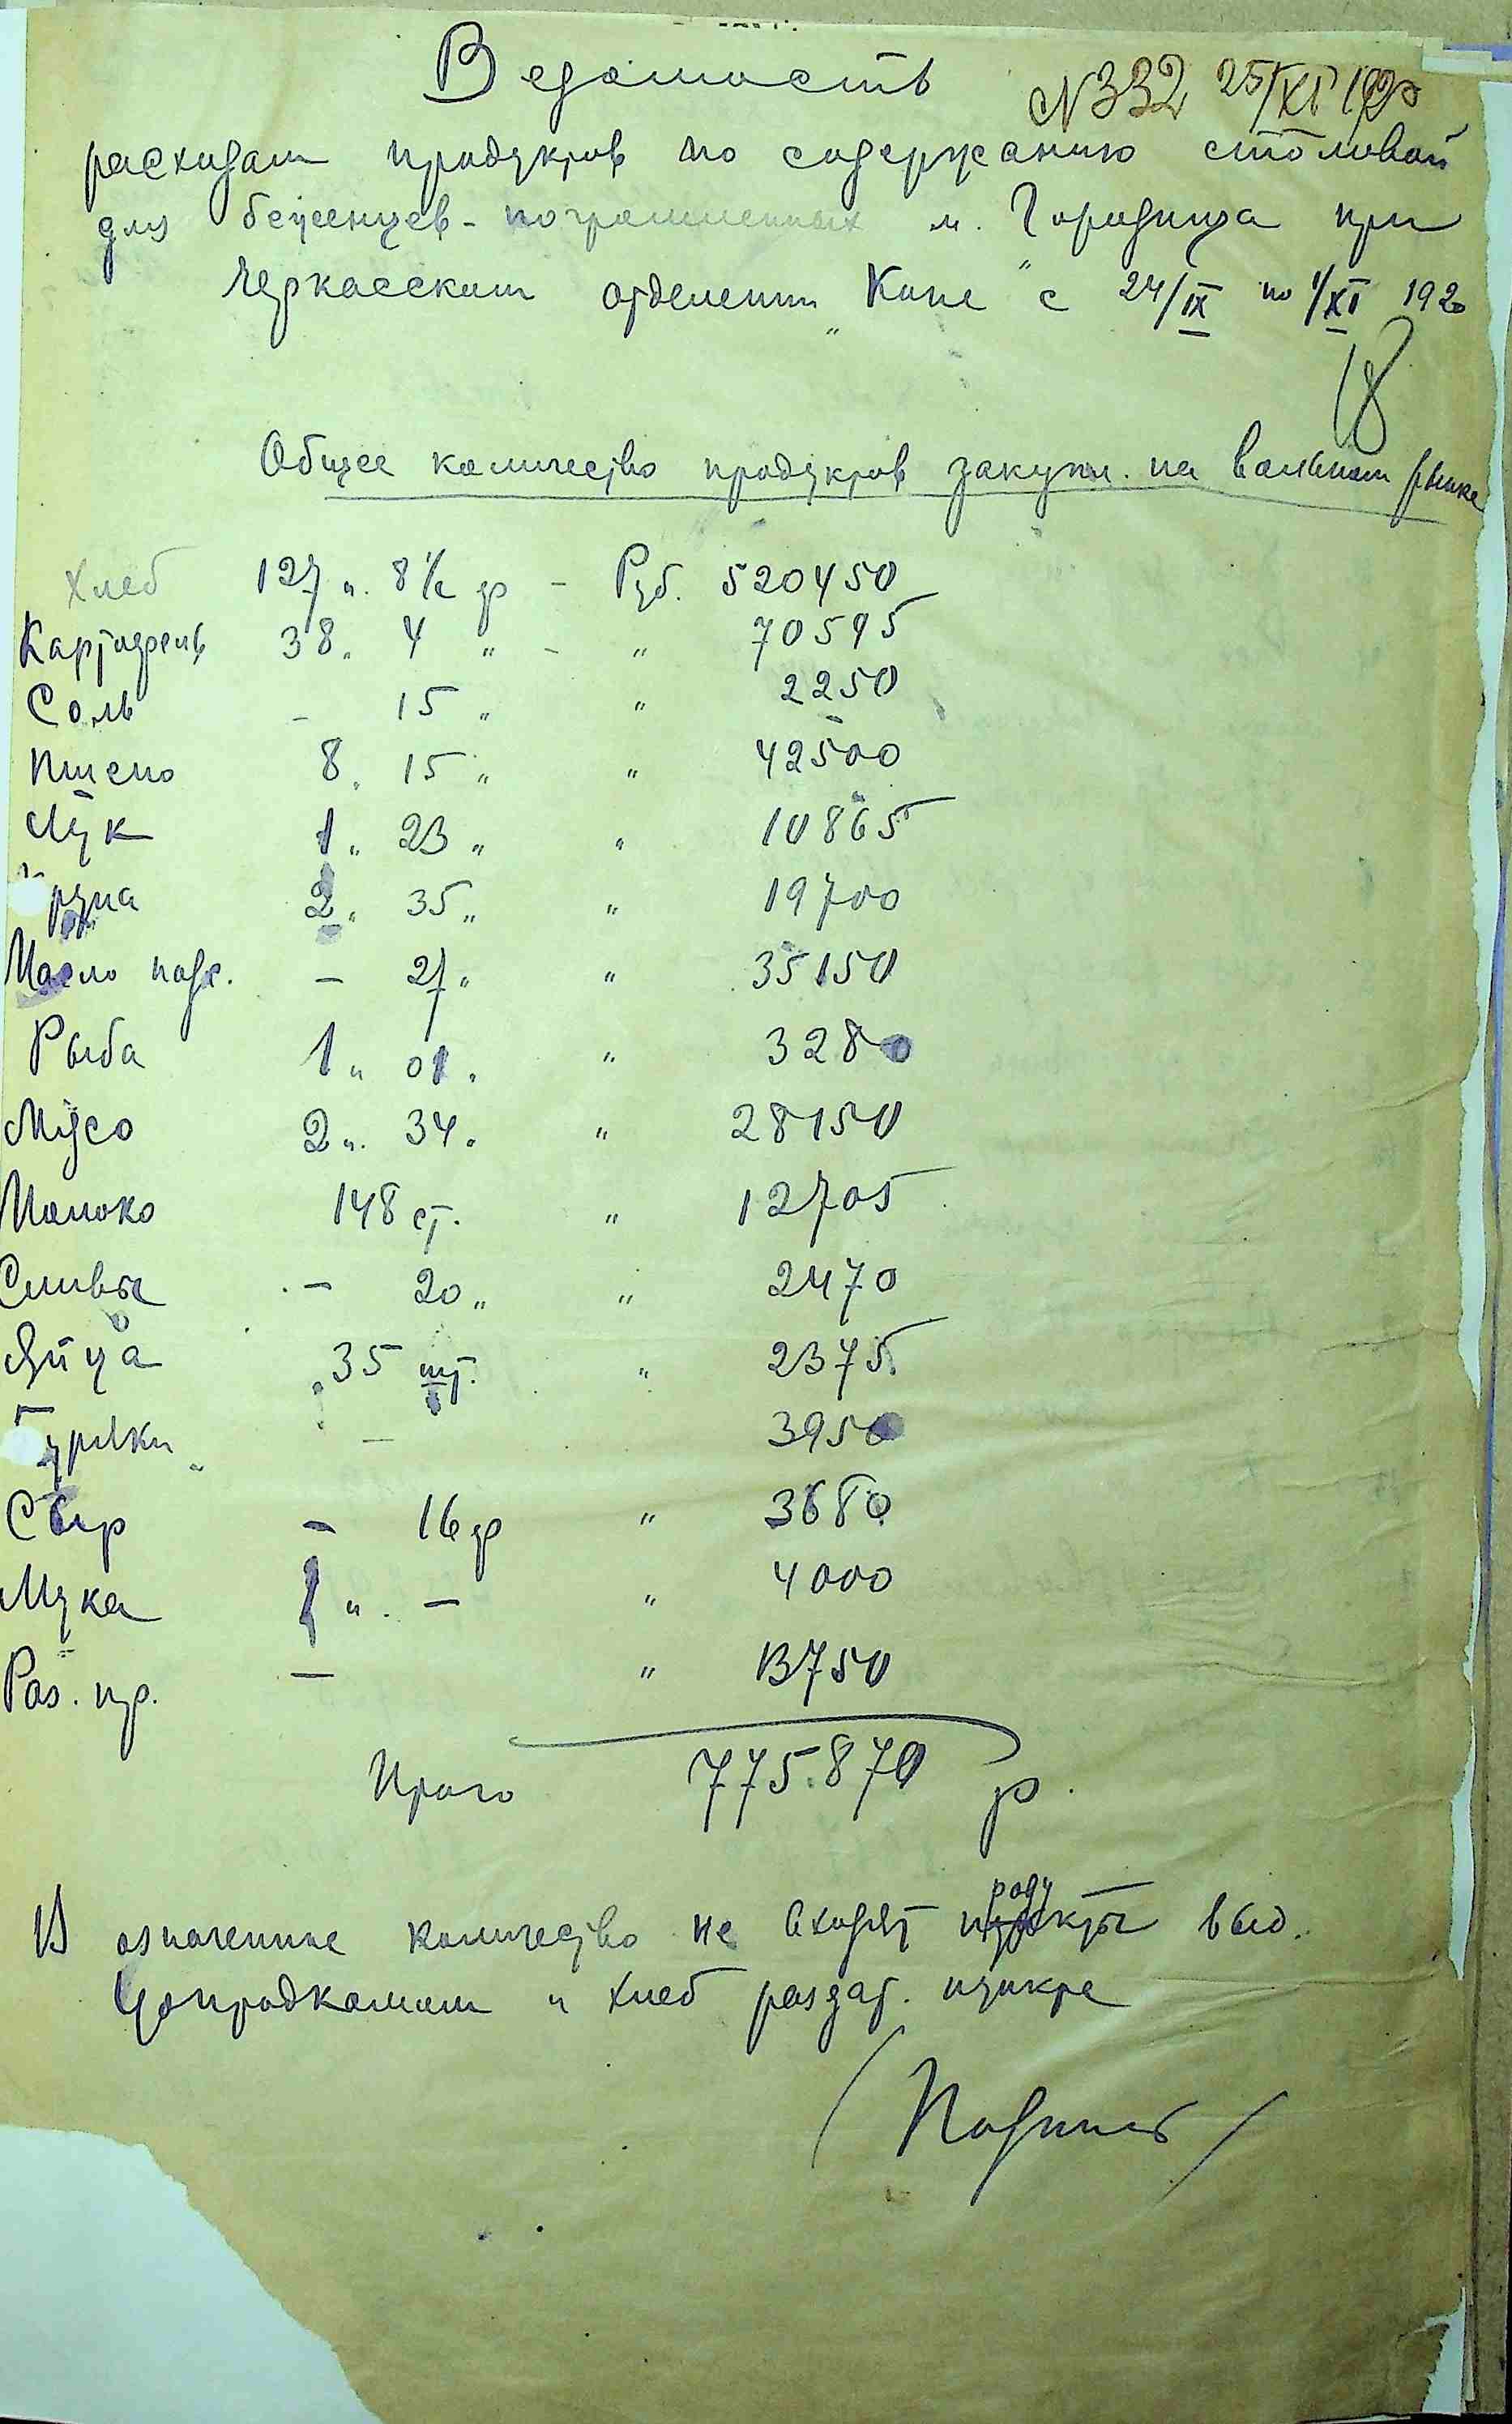 Ведомость
N 332 25/XI 1920
расходам продуктов по содержанию столовой
для беженцев-погромленных м. Городища при
Черкасском отделении "Копе" с 24/IX по 1/XI 1920
18
Общее количество продуктов закупл. на вольном рынке
Хлеб 127 п. 8 1/2 ф - Руб. 520450
Картофель 38 " 4 " - " 70595
Соль - 15 " " 2250
Пшено 8 " 15 " " 42500
Лук 1 " 23 " " 10865
рупа 2 " 35 " " 19700
Масло подс. - 27 " " 35150
Рыба 1 " 01 " " 3280
Мясо 2 " 34 " " 28150
Молоко 148 ст. " 12705
Сливы - 20 " " 2470
Яйца 35 шт. " 2375
Буряки " - 3950
Сыр - 16 ф " 3680
Мука 1 п. - " 4000
Раз. пр. - " 13750
Итого 775.870 р.
В означенное количество не входят продукты выд.
Упродкомом и хлеб раздав. пункте
/Подпись/